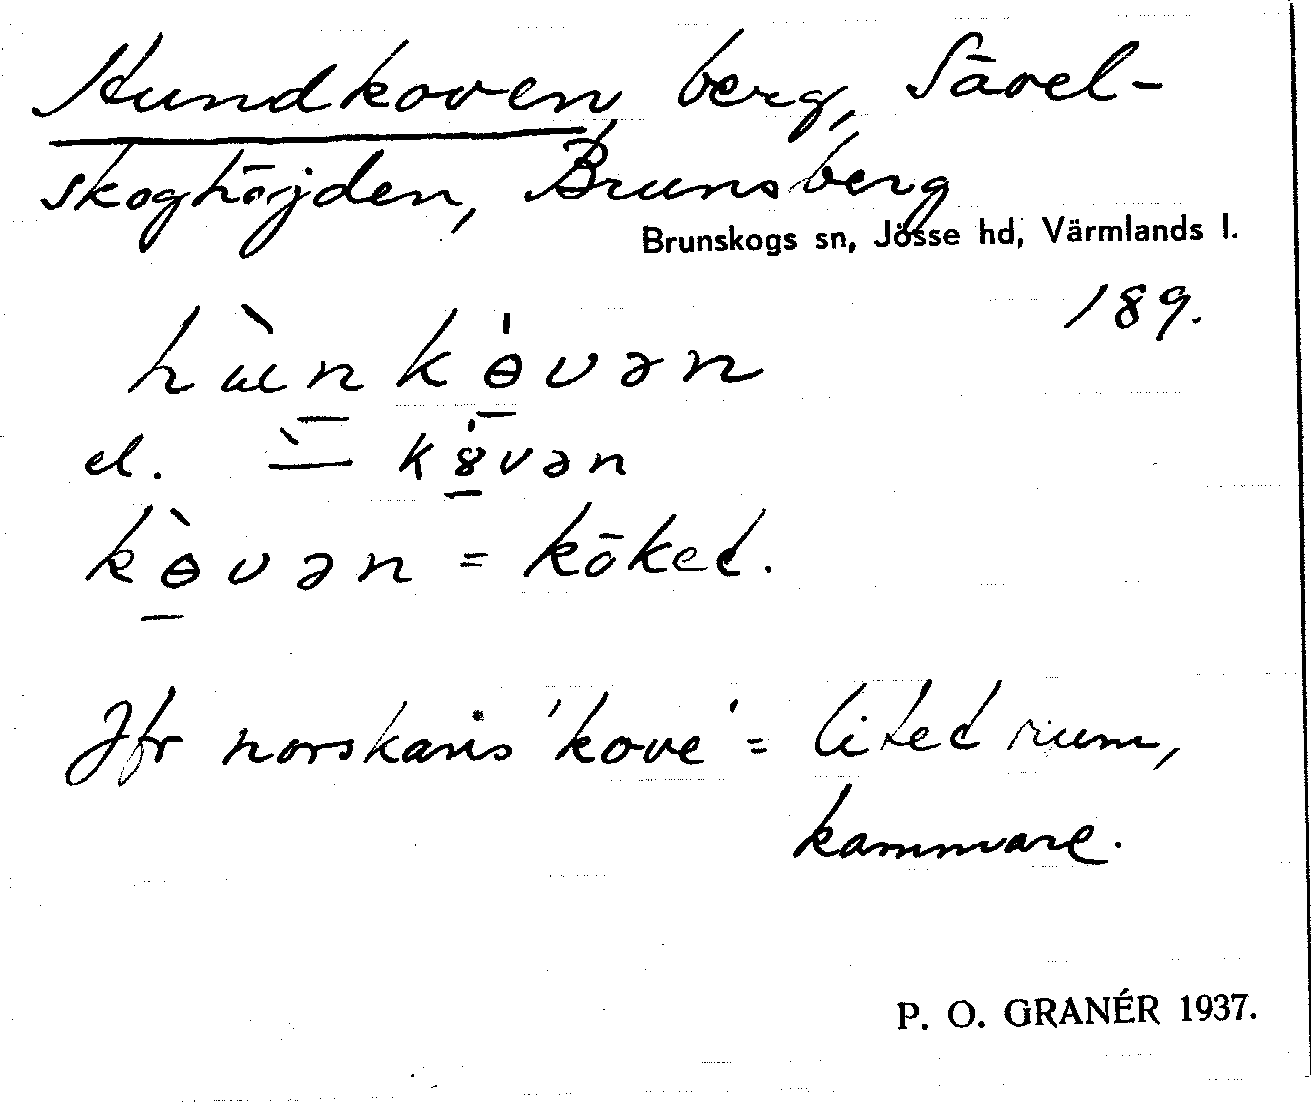 Hundkoven, berg, Sävel-
skoghöjden, Brunsberg
Brunskogs sn, Jösse hd, Värmlands l.
189.
hu̇̀n̲ kɵ̲́vən
el. ⸺̀ k8̲́vən
kɵ̲̀vən = köket.
Jfr norskans 'kove' = litet rum,
kammare.
P. O. GRANÉR 1937.